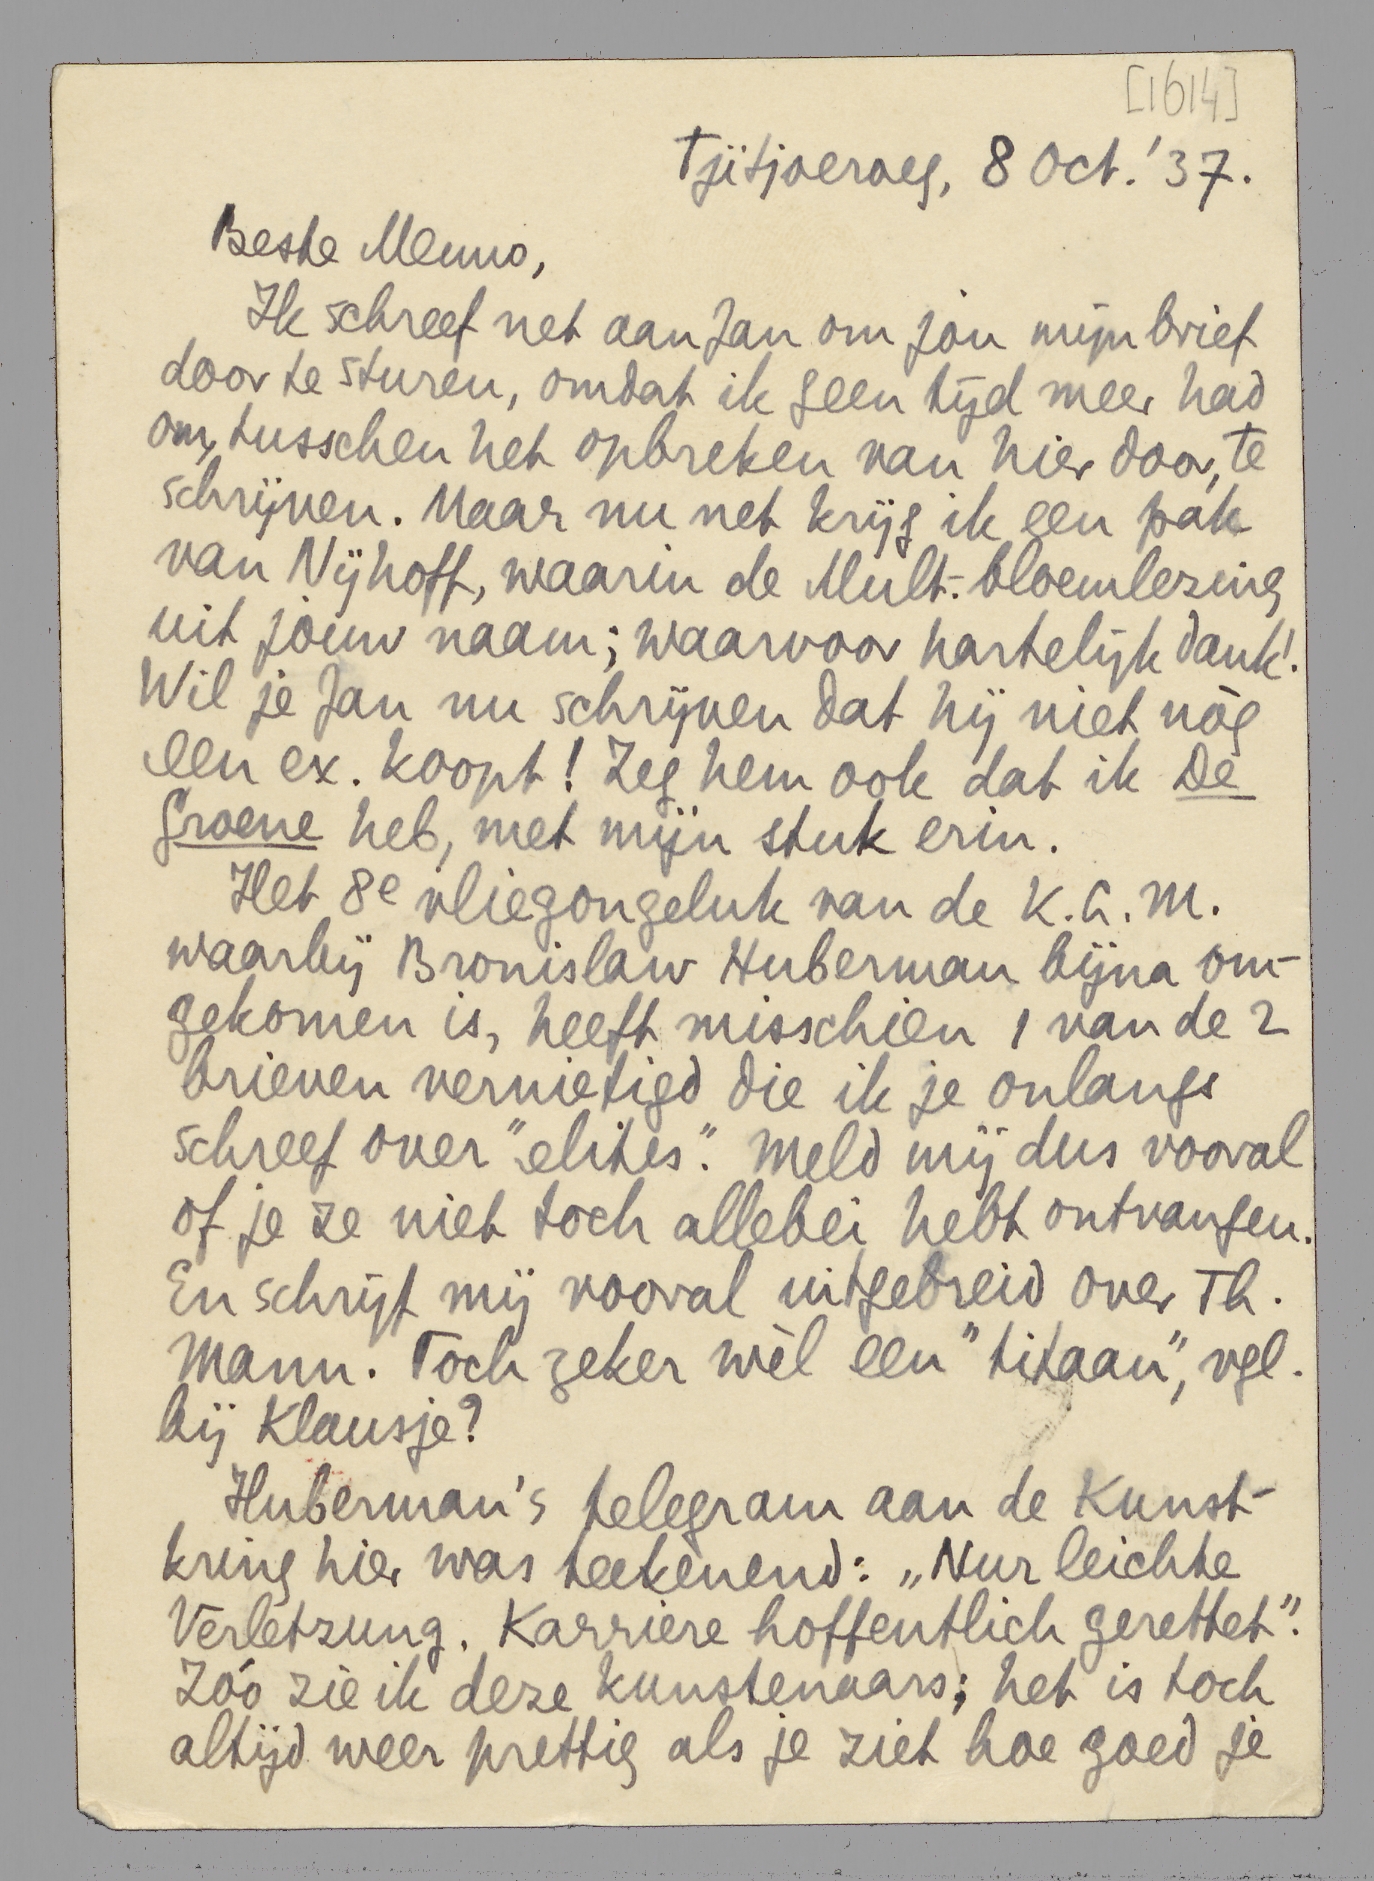 [1614]
Tjitjoeroeg, 8 Oct. '37.
Beste Menno,
Ik schreef net aan Jan om jou mijn brief
door te sturen, omdat ik geen tijd meer had
om, tusschen het opbreken van hier door, te
schrijven. Maar nu net krijg ik een pak
van Nijhoff, waarin de Mult.-bloemlezing
uit jouw naam; waarvoor hartelijk dank!
Wil je Jan nu schrijven dat hij niet nòg
een ex. koopt! Zeg hem ook dat ik De
Groene heb, met mijn stuk erin.
Het 8e vliegongeluk van de K.L.M.
waarbij Bronislaw Huberman bijna om-
gekomen is, heeft misschien 1 van de 2
brieven vernietigd die ik je onlangs
schreef over "elites". Meld mij dus vooral
of je ze niet toch allebei hebt ontvangen.
En schrijf mij vooral uitgebreid over Th.
Mann. Toch zeker wèl een "titaan", vgl.
bij Klausje?
Huberman's telegram aan de Kunst-
kring hier was teekenend: „Nur leichte
Verletzung. Karriere hoffentlich gerettet".
Zóo zie ik deze kunstenaars; het is toch
altijd weer prettig als je ziet hoe goed je